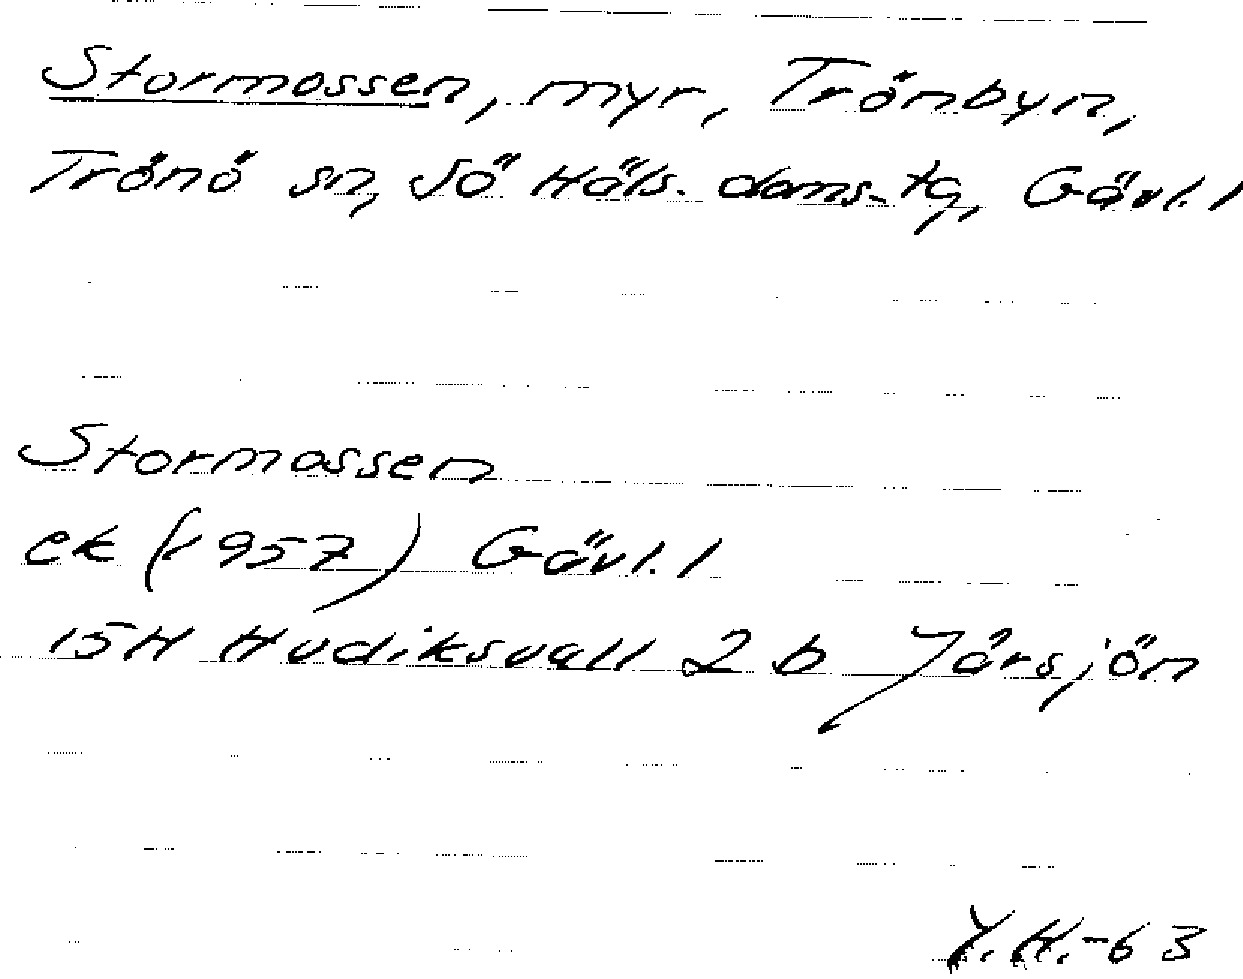 Stormossen, myr, Trönbyn,
Trönö sn, Sö Häls. doms. tg, Gävl. l
Stormossen
ek (1957) Gävl. l
15H Hudiksvall 2 b Jårsjön
Y.H.-63